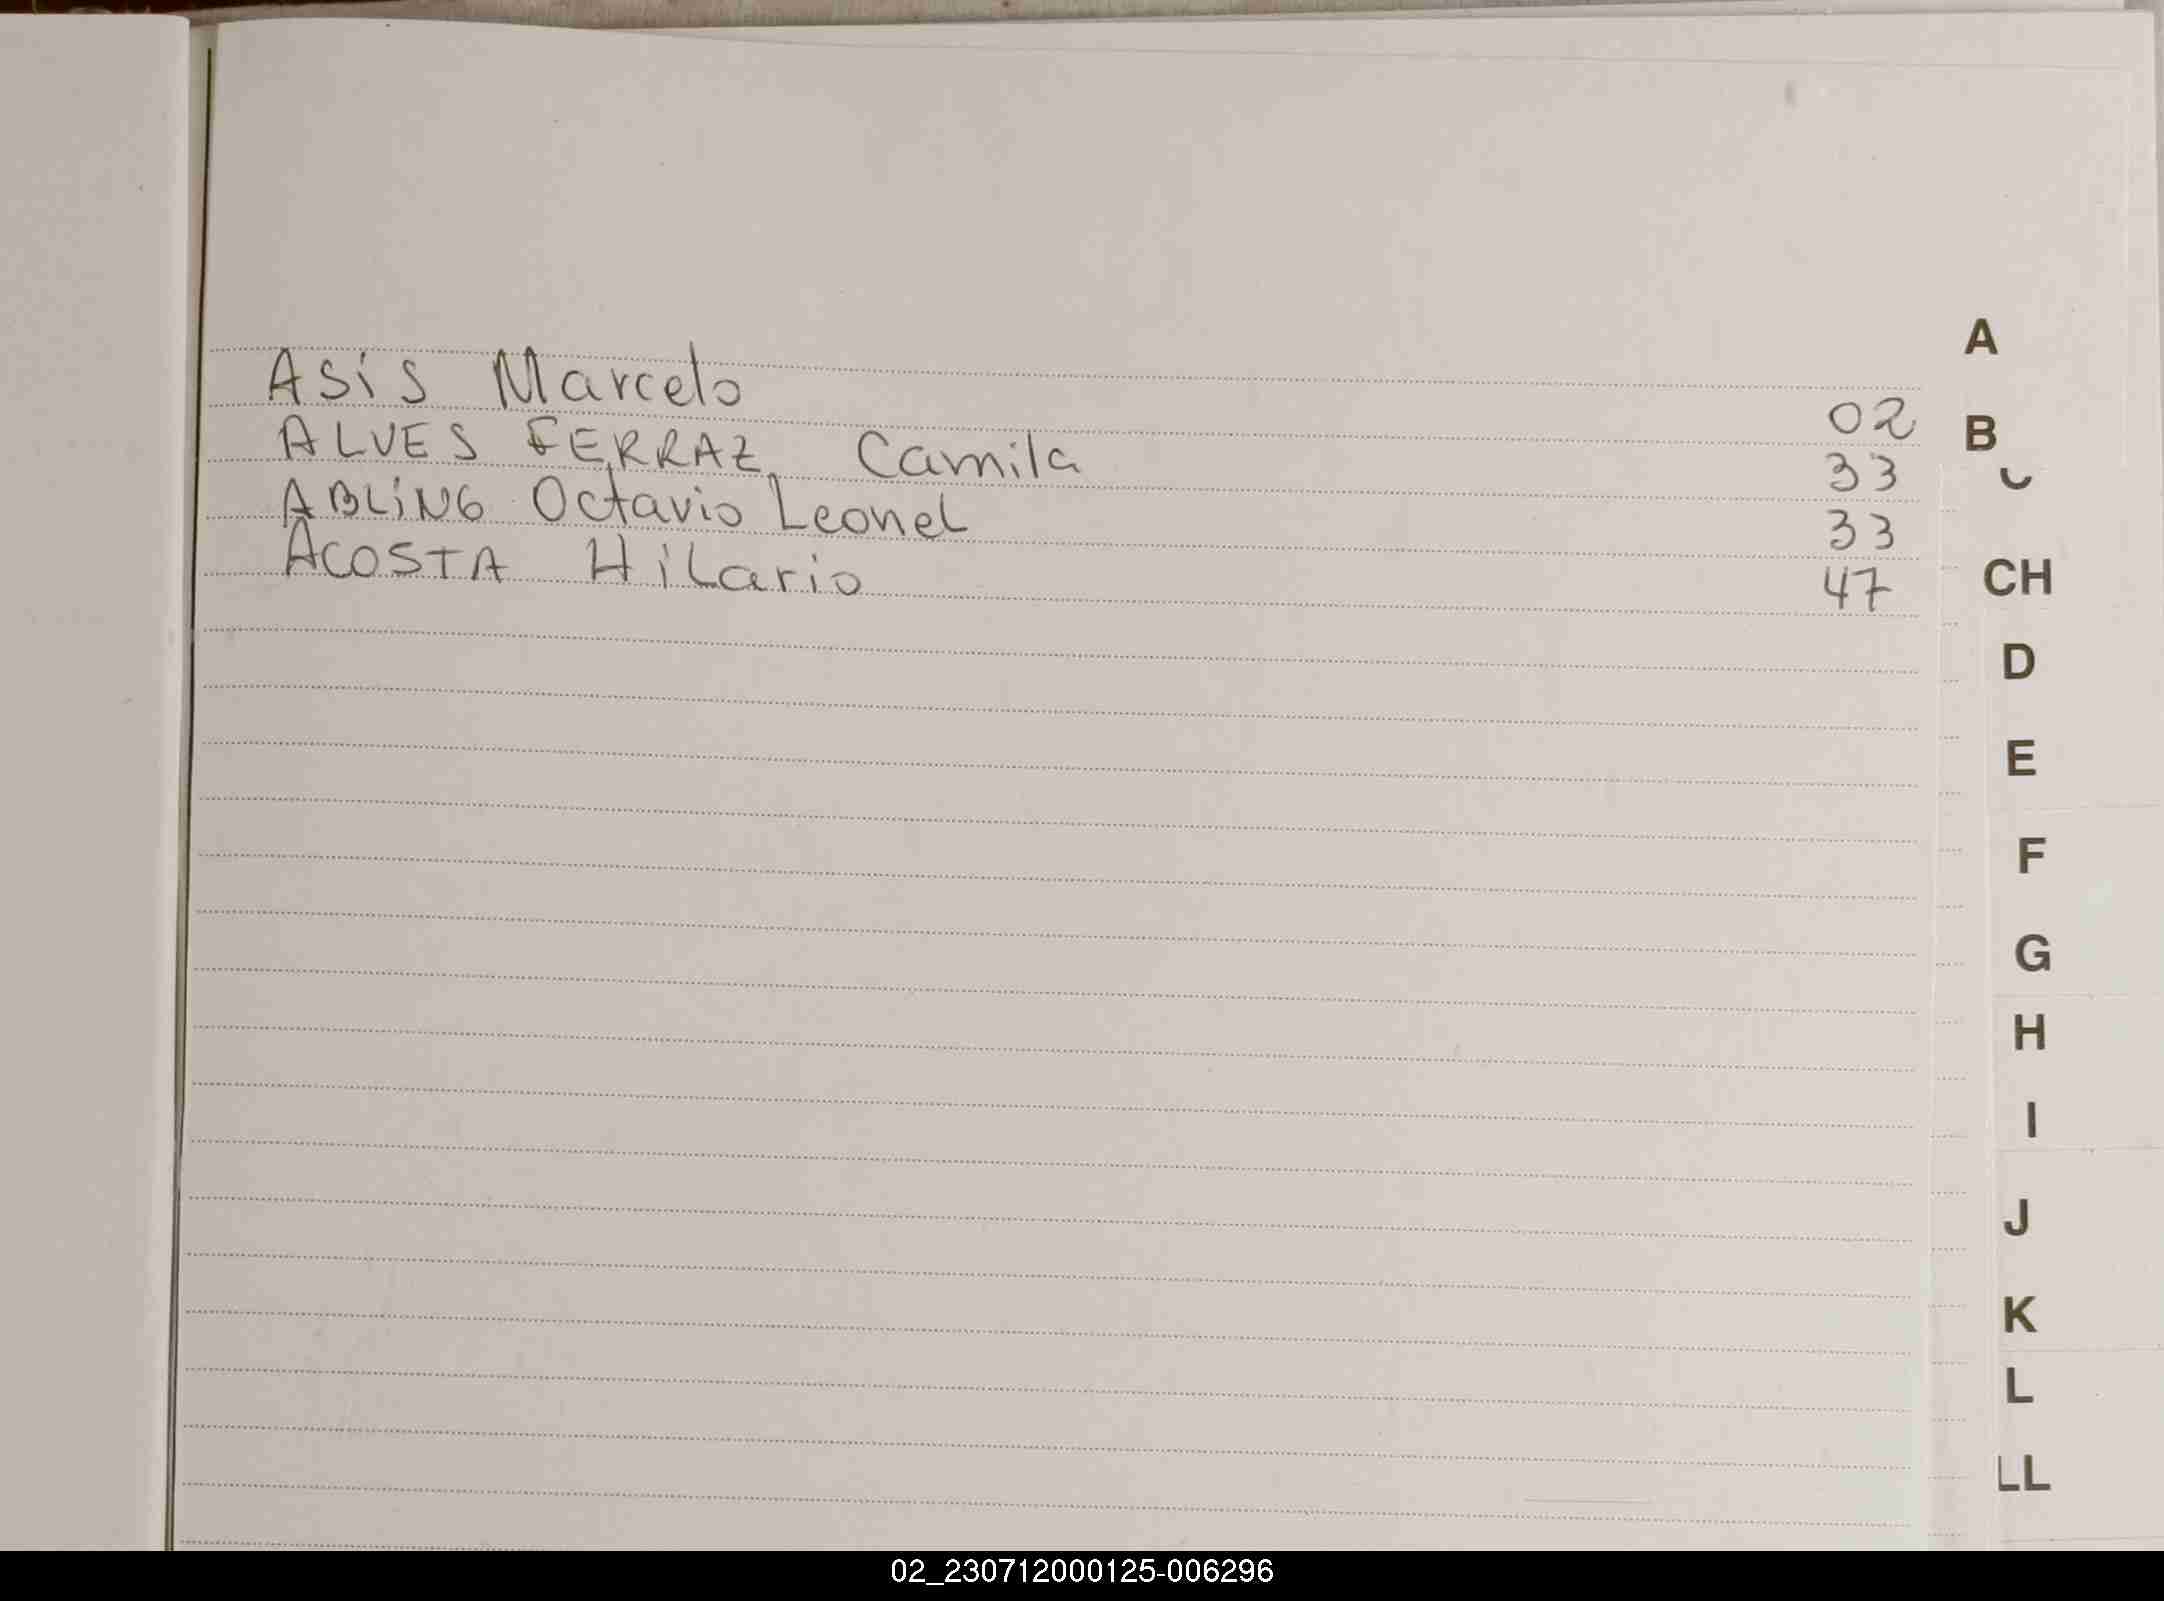 Asis Marcelo 02
ALVES FERRAZ, Camila 33
ABLING Octavio Leonel 33
ACOSTA Hilario 47
A
B
CH
D
E
F
G
H
I
J
K
L
LL
02_230712000125-006296